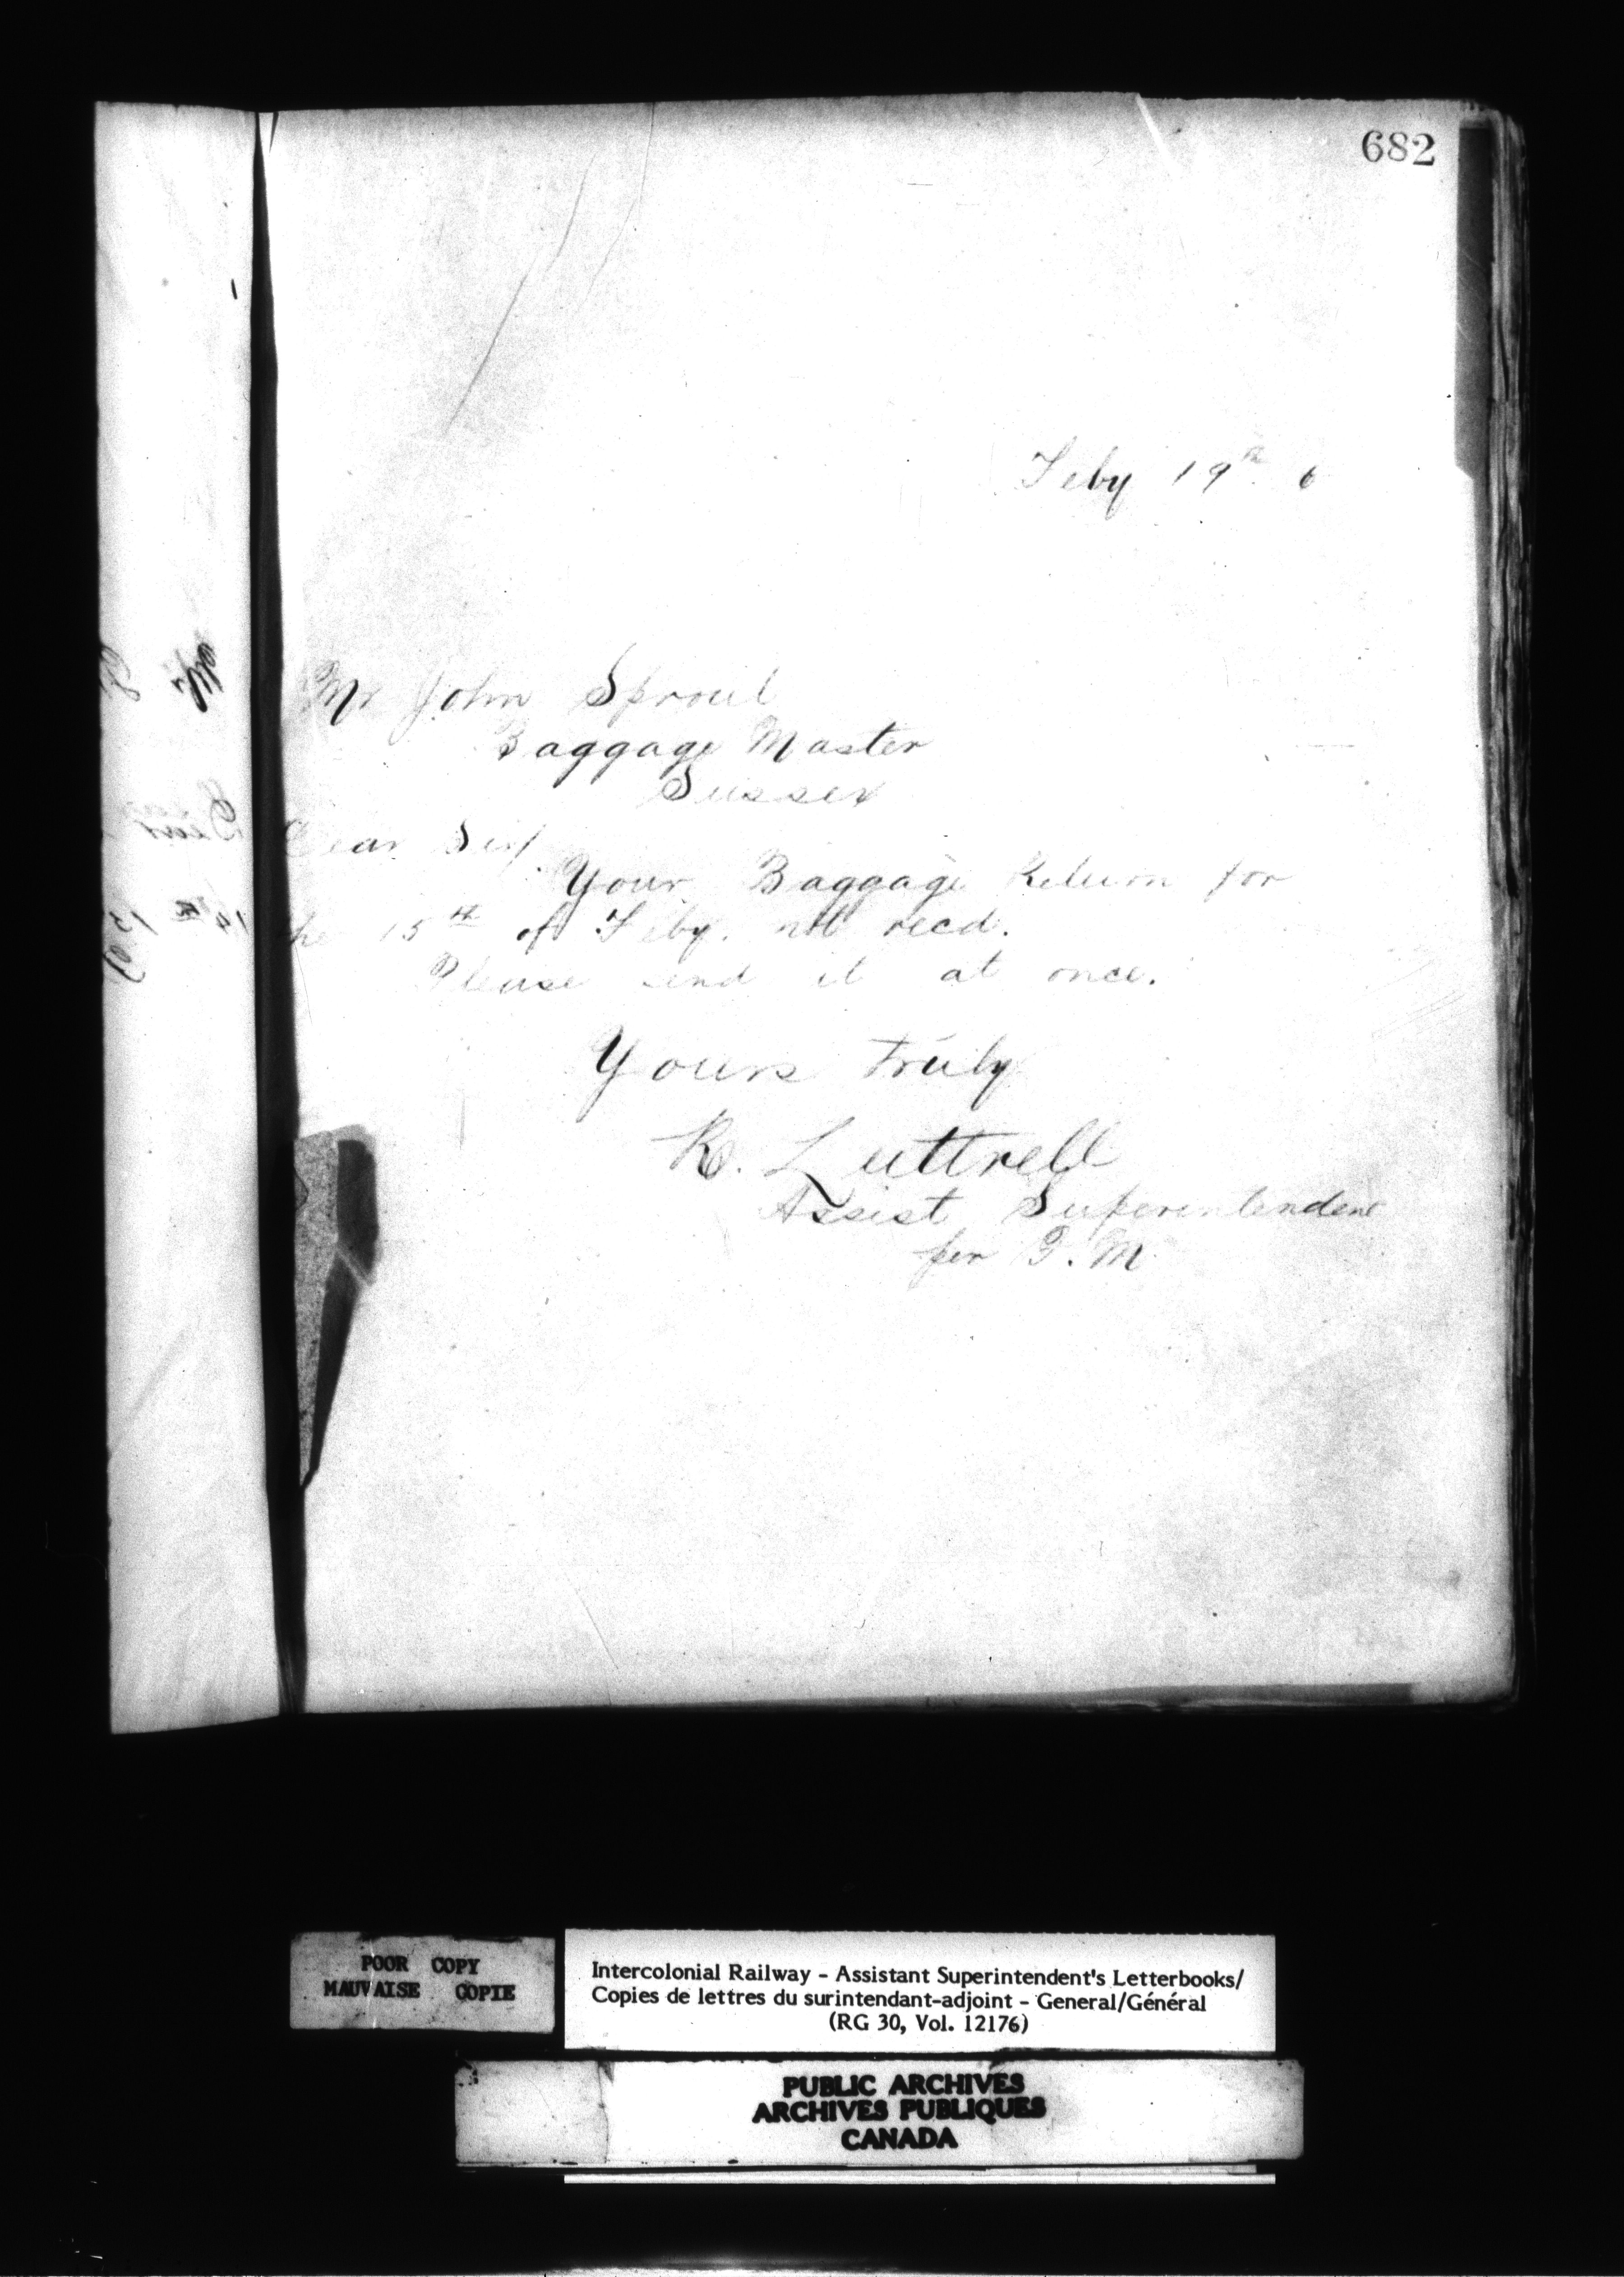 682
Feby 19th 6
Mr John Sproul
Baggage Master
Sussex
Dear Sir/
Your Baggage Return for
the 15th of Feby. not recd.
Please send it at once.
Yours truly
R. Luttrell
Assist Superintendent
per G. M
POOR COPY
MAUVAISE COPIE
Intercolonial Railway - Assistant Superintendent's Letterbooks/
Copies de lettres du surintendant-adjoint - General/Général
(RG 30, Vol. 12176)
PUBLIC ARCHIVES
ARCHIVES PUBLIQUES
CANADA